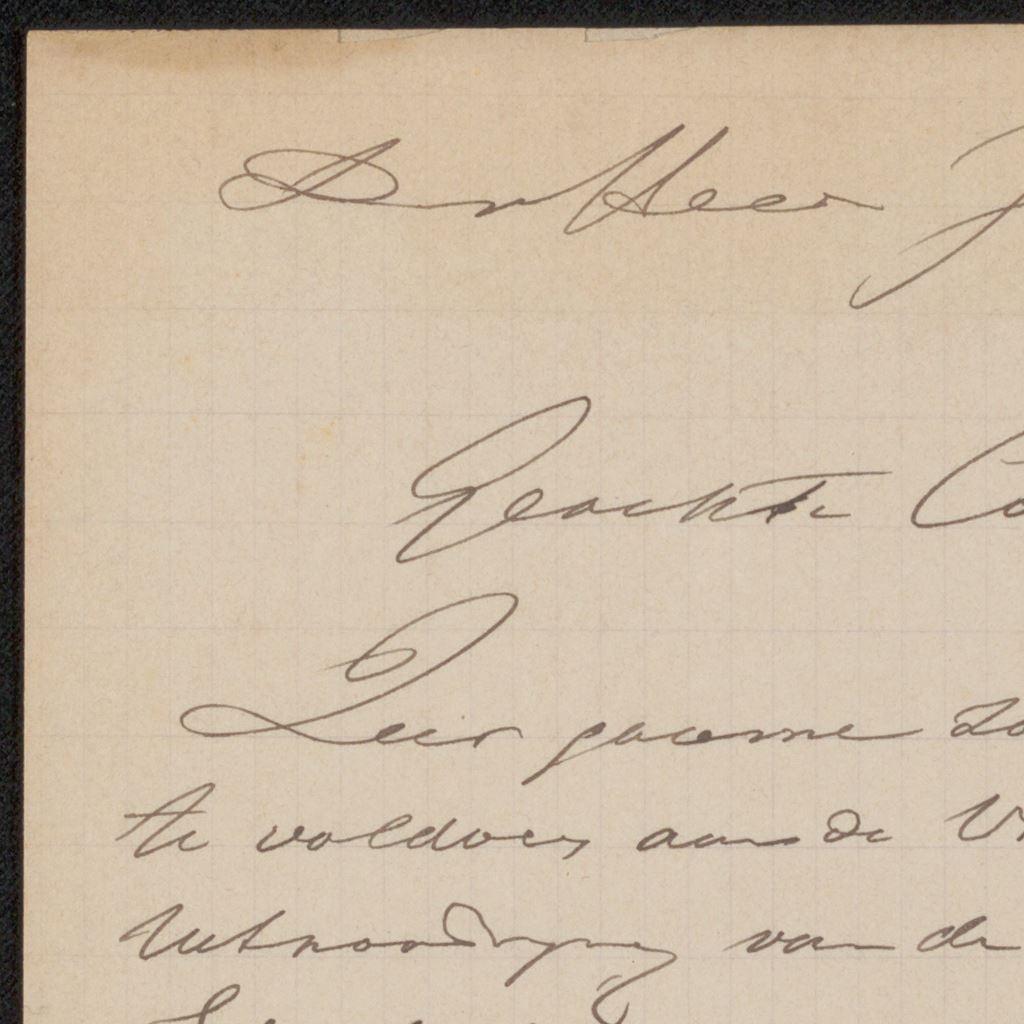 Den Heer J
Geachte Co
Zeer gaarne zo
te voldoen aan de Vr
Uitnoodiging van de